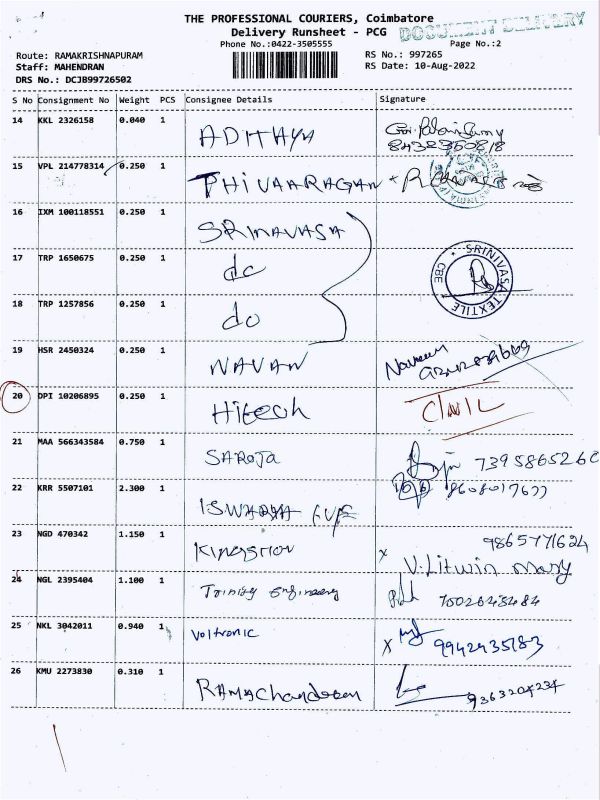 THE PROFESSIONAL COURIERS, Coimbatore
DOCUMENT DELIVERY
Delivery Runsheet - PCG
Phone No.:0422-3505555
Page No.:2
Route: RAMAKRISHNAPURAM
RS No.: 997265
Staff: MAHENDRAN
RS Date: 10-Aug-2022
DRS No.: DCJB99726502
S No Consignment No Weight PCS Consignee Details Signature
14 KKL 2326158 0.040 1 ADITHAYA
8432350818
15 VPL 214778314 0.250 1 THIVAARAGAN
16 IXM 100118551 0.250 1 SRINAVASA
17 TRP 1650675 0.250 1 do
SRINIVASA TEXTILE CBE
18 TRP 1257856 0.250 1 do
19 HSR 2450324 0.250 1 NAVAN Naveen
20 DPI 10206895 0.250 1 Hitech
21 MAA 566343584 0.750 1 SAROJA 7395865260
22 KRR 5507101 2.300 1 ISWARYA 8608017677
23 NGD 470342 1.150 1 Kingstion 9865771624
x V. Litwin Mary
24 NGL 2395404 1.100 1 Trinity Engineering
25 NKL 3042011 0.940 1 Voltronic x 9942435183
26 KMU 2273830 0.310 1 RAMAChandran